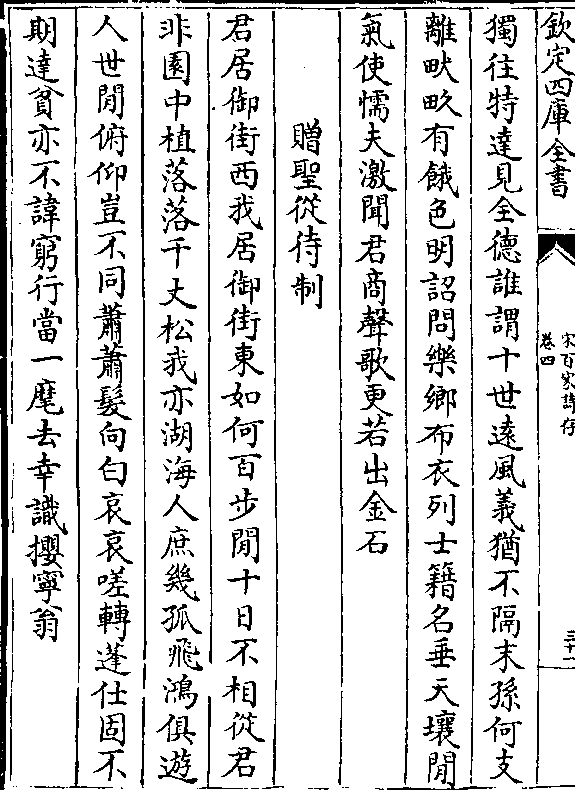 欽定四庫全書
宋百家詩存
卷四
三十一
獨往特達見全德誰謂十世遠風義猶不隔末孫何支
離畎畝有餓色明詔問樂鄉布衣列士籍名垂天壤間
氣使懦夫激聞君商聲歌更若出金石
贈聖從待制
君居御街西我居御街東如何百步間十日不相從君
非園中植落落千丈松我亦湖海人庶幾孤飛鴻俱遊
人世間俯仰豈不同蕭蕭髮向白哀哀嗟轉蓬仕固不
期達貧亦不諱窮行當一麾去幸識攖寧翁